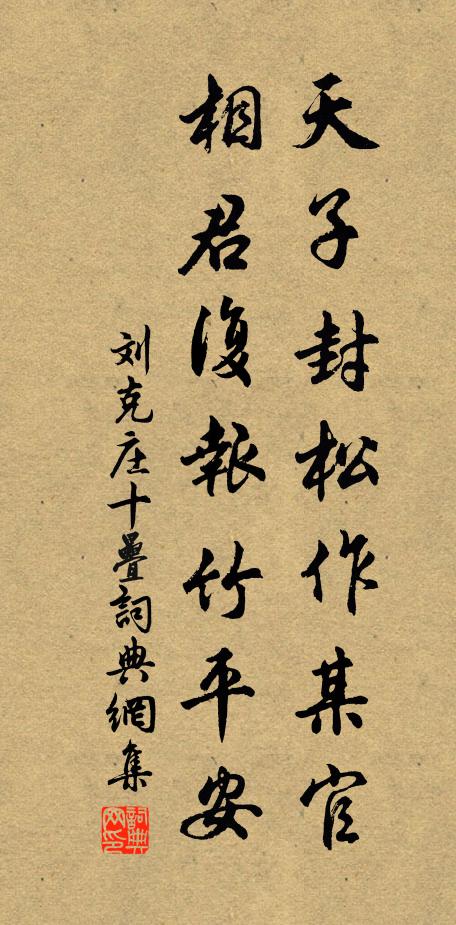 天子封松作某官
相君復報竹平安
刘克庄十疊詞典網集
詞典網印